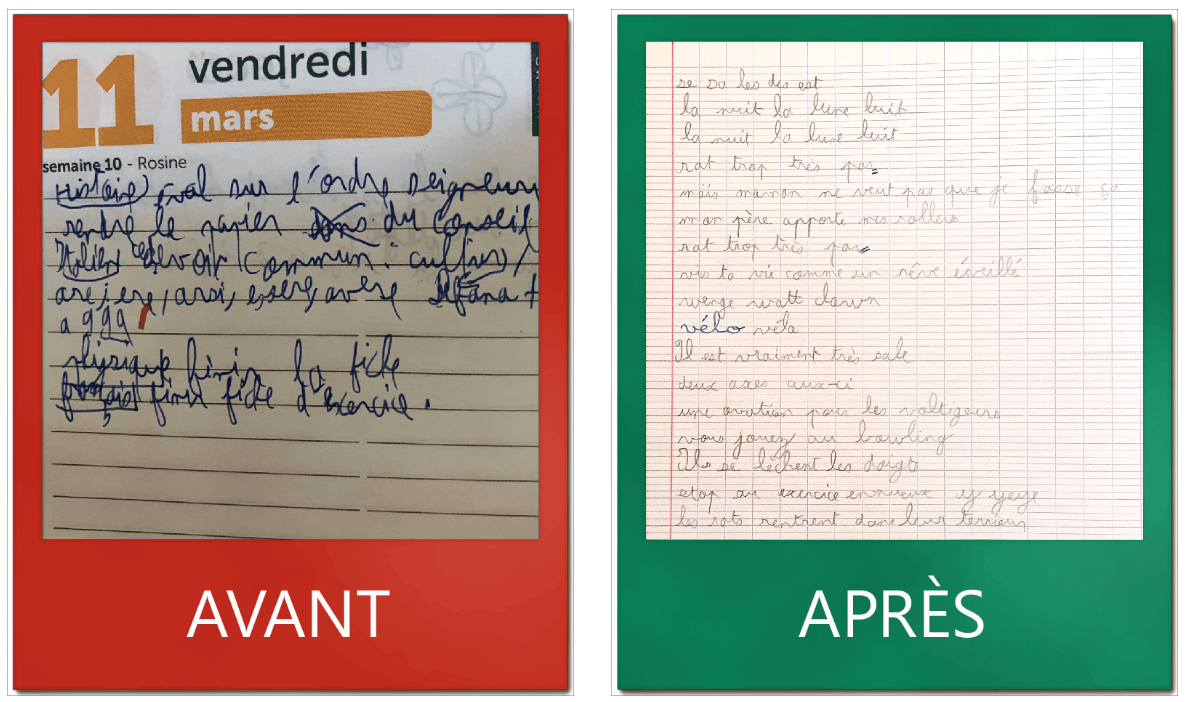 11 vendredi
mars
semaine 10 - Rosine
Histoire) éval sur l'ordre seigneuri
rendre le papier du conseil
Italien devoir commun :
a ggg
physique finir la fiche
français finir fiche d'exercice.
AVANT
se sa les des est
la nuit la lune luit
la nuit la lune luit
rat trop très par
mais maman ne veut pas que je fasse ça
mon père apporte mes rollers
rat trop très par
vis ta vie comme un rêve éveillé
wenge watt lawn
vélo vélo
Il est vraiment très sale
deux axes ceux-ci
une ovation pour les voltigeurs
vous jouez au bowling
Ils se lèchent les doigts
stop au exercice ennueux y yeye
les rats rentrent dans leur terrier
APRÈS